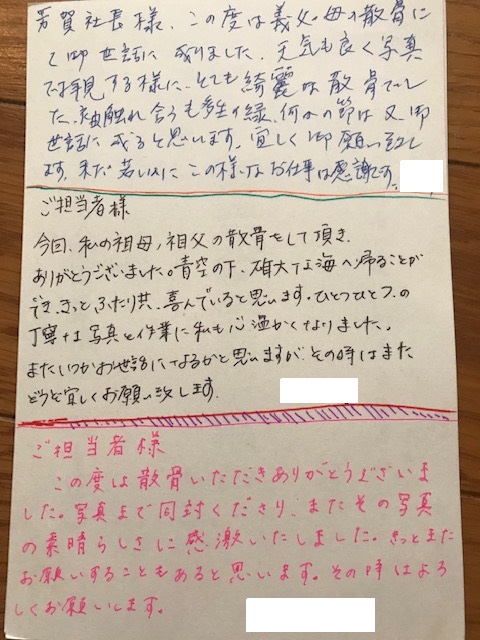 芳賀社長様、この度は義父・母の散骨に
て御世話に成りました。天気も良く写真
で拝見する様に、とても綺麗な散骨でし
た。袖触れ合うも多生の縁、何かの節は又、御
世話に成ると思います。宜しく御願い致し
ます。まだ若いのにこの様なお仕事は感謝です。
ご担当者様
今回、私の祖母、祖父の散骨をして頂き
ありがとうございました。青空の下、雄大な海へ帰ることが
でき、きっとふたり共、喜んでいると思います。ひとつひとつの
丁寧な写真と作業に私も心温かくなりました。
またいつかお世話になるかと思いますが、その時はまた
どうぞ宜しくお願い致します。
ご担当者様
この度は散骨いただきありがとうございま
した。写真まで同封くださり、またその写真
の素晴らしさに感激いたしました。きっとまた
お願いすることもあると思います。その時はよろ
しくお願いします。